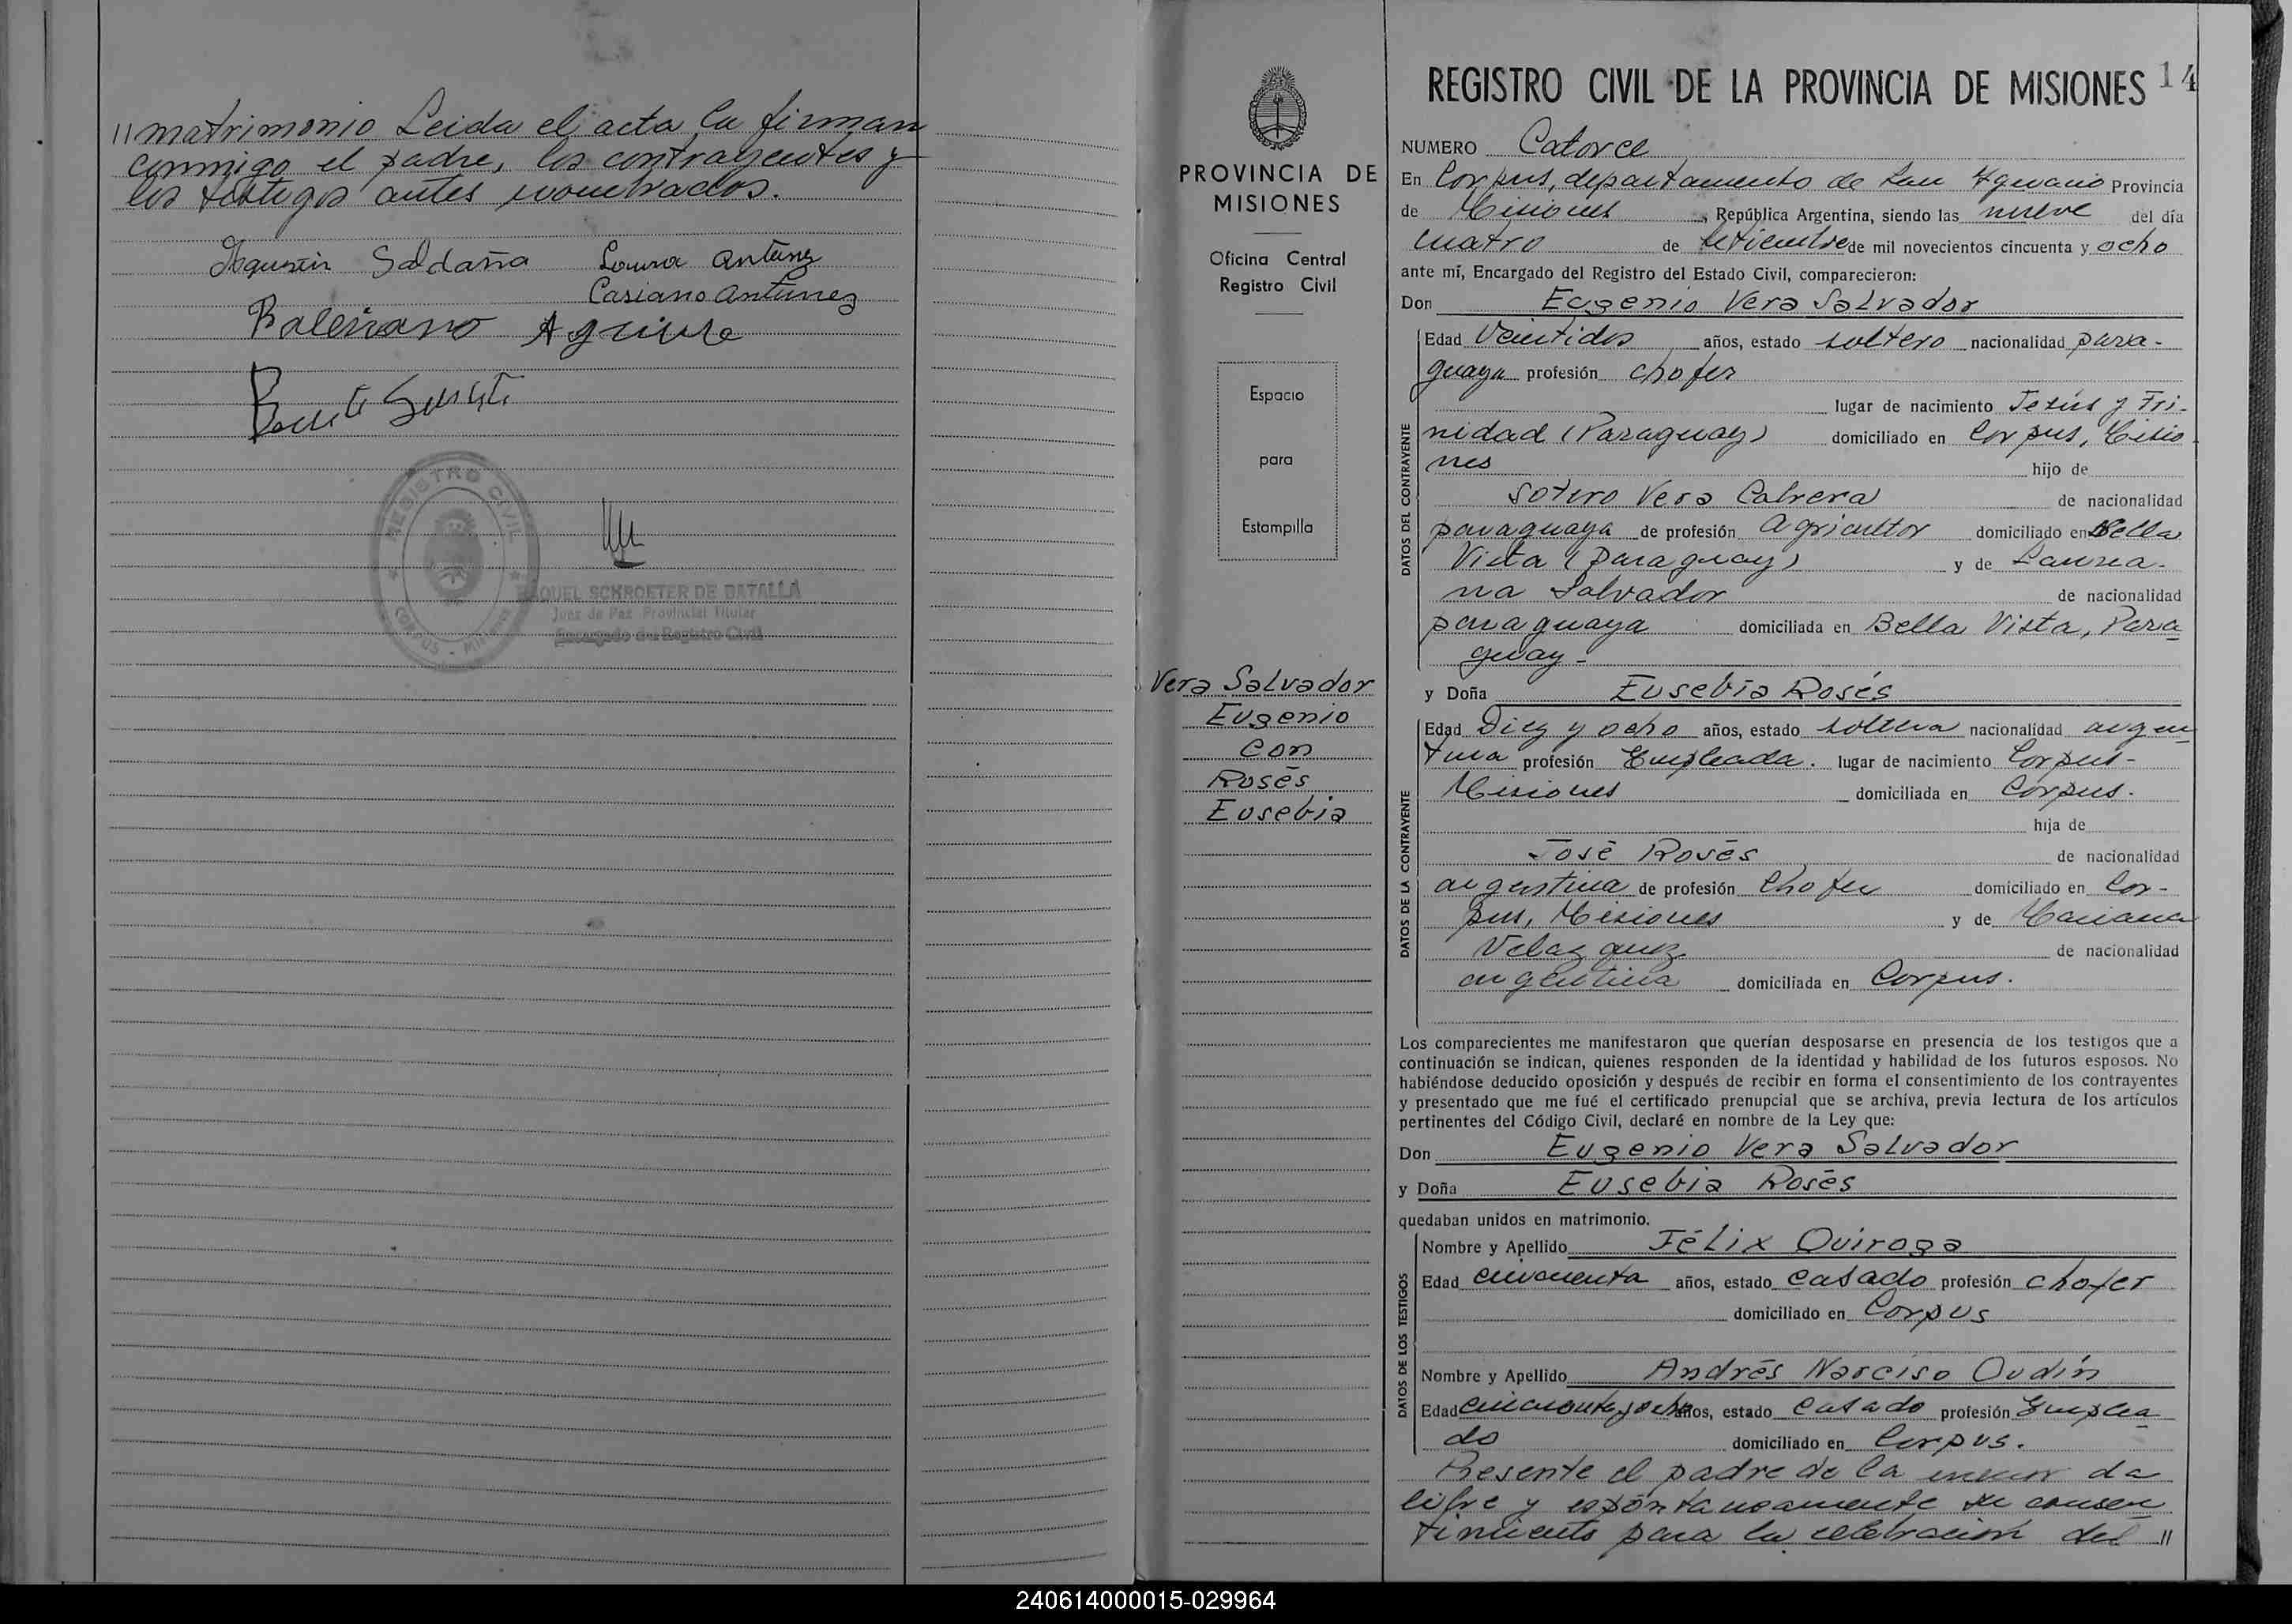 // matrimonio Leida el acta la firman
conmigo el padre, los contrayentes y
los testigos antes nombrados.
Agustin Saldaña Laura Antunez
Casiano Antunnez
Baleriano Aguirre
REGISTRO CIVIL
CORPUS - MISIONES
QUEL SCHROETER DE BATALLA
Juez de Paz Provincial Titular
Encargado del Registro Civil
PROVINCIA DE
MISIONES
Oficina Central
Registro Civil
Espacio
para
Estampilla
Vera Salvador
Eugenio
con
Rosés
Eusebia
REGISTRO CIVIL DE LA PROVINCIA DE MISIONES 14
NUMERO Catorce
En Corpus, departamento de San Ignacio Provincia
de Misiones, República Argentina, siendo las nueve del día
cuatro de setiembre de mil novecientos cincuenta y ocho
ante mí, Encargado del Registro del Estado Civil, comparecieron:
Don Eugenio Vera Salvador
DATOS DEL CONTRAYENTE
Edad Veintidos años, estado soltero nacionalidad para-
guaya profesión chofer
lugar de nacimiento Jesús y Tri-
nidad (Paraguay) domiciliado en Corpus, Misio
nes hijo de
Sotero Vera Cabrera de nacionalidad
paraguaya de profesión Agricultor domiciliado en Bella
Vista (Paraguay) y de Laurea-
na Salvador de nacionalidad
paraguaya domiciliada en Bella Vista, Para
guay-
y Doña Eusebia Rosés
DATOS DE LA CONTRAYENTE
Edad Diez y ocho años, estado soltera nacionalidad argen
tina profesión Empleada. lugar de nacimiento Corpus-
Misiones domiciliada en Corpus.
hija de
José Rosés de nacionalidad
argentina de profesión Chofer domiciliado en Cor-
pus, Misiones y de Mariana
Velazquez de nacionalidad
argentina domiciliada en Corpus.
Los comparecientes me manifestaron que querían desposarse en presencia de los testigos que a
continuación se indican, quienes responden de la identidad y habilidad de los futuros esposos. No
habiéndose deducido oposición y después de recibir en forma el consentimiento de los contrayentes
y presentado que me fué el certificado prenupcial que se archiva, previa lectura de los artículos
pertinentes del Código Civil, declaré en nombre de la Ley que:
Don Eugenio Vera Salvador
y Doña Eusebia Rosés
quedaban unidos en matrimonio.
DATOS DE LOS TESTIGOS
Nombre y Apellido Félix Quiroga
Edad cincuenta años, estado casado profesión chofer
domiciliado en Corpus
Nombre y Apellido Andrés Narciso Oudín
Edad cincuenta y ocho años, estado casado profesión Emplea
do domiciliado en Corpus.
Presente el padre de la menor da
libre y espontaneamente su consen
timiento para la celebracion del //
240614000015-029964